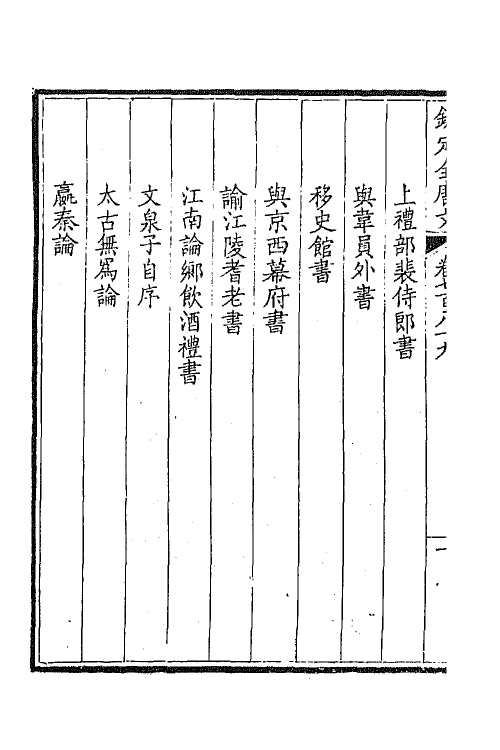 欽定全唐文 卷七百八十九 一
上禮部裴侍郎書
與韋員外書
移史館書
與京西幕府書
諭江陵耆老書
江南論鄉飲酒禮書
文泉子自序
太古無爲論
嬴秦論